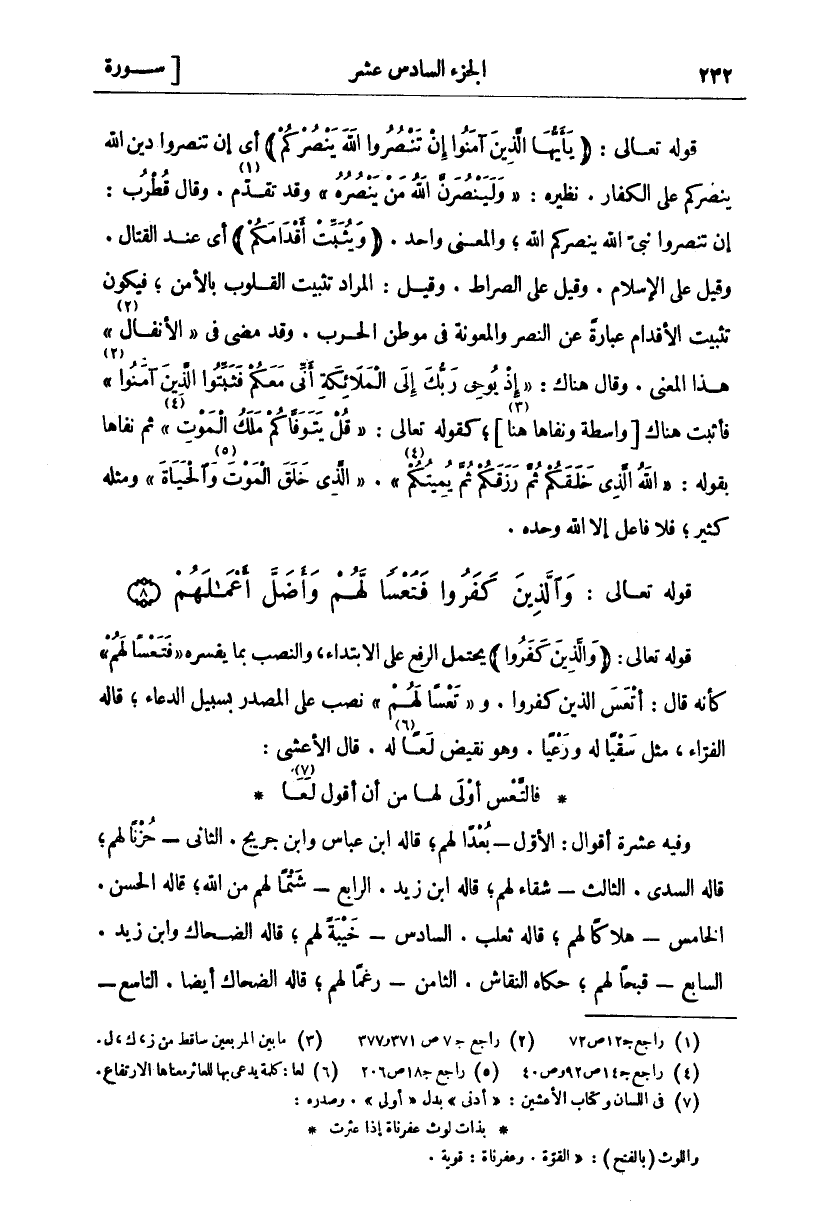 ٢٣٢ الجزء السادس عشر [ ســورة
قوله تعـالى : ﴿ يَأَيُّهَا الَّذِينَ آمَنُوا إِنْ تَنْصُرُوا اللَّهَ يَنْصُرْكُمْ ﴾ أى إن تنصروا دين الله
ينصركم على الكفار . نظيره : « وَلَيَنْصُرَنَّ اللَّهُ مَنْ يَنْصُرُهُ (١) » وقد تقدّم . وقال قُطْرُب :
إن تنصروا نبىّ الله ينصركم الله ؛ والمعـنى واحد . ﴿ وَيُثَبِّتْ أَقْدَامَكُمْ ﴾ أى عنـد القتال .
وقيل على الإسلام . وقيل على الصراط . وقيـل : المراد تثبيت القـلوب بالأمن ؛ فيكون
تثبيت الأقدام عبارةً عن النصر والمعونة فى موطن الحـرب . وقد مضى فى « الأنفـال (٢) »
هـذا المعنى . وقال هناك : « إِذْ يُوحِى رَبُّكَ إِلَى الْمَلَائِكَةِ أَنِّى مَعَكُمْ فَثَبِّتُوا الَّذِينَ آمَنُوا (٢) »
فأثبت هناك [ واسطة ونفاها هنا (٣) ] ؛ كقوله تعالى : « قُلْ يَتَوَفَّاكُمْ مَلَكُ الْمَوْتِ (٤) » ثم نفاها
بقوله : « اللَّهُ الَّذِى خَلَقَكُمْ ثُمَّ رَزَقَكُمْ ثُمَّ يُمِيتُكُمْ (٤) » . « الَّذِى خَلَقَ الْمَوْتَ وَالْحَيَاةَ (٥) » ومثله
كثير ؛ فلا فاعل إلا الله وحده .
قوله تعـالى : وَٱلَّذِينَ كَفَرُوا فَتَعْسًا لَّهُمْ وَأَضَلَّ أَعْمَـٰلَهُمْ ٨
قوله تعالى : ﴿ وَالَّذِينَ كَفَرُوا ﴾ يحتمل الرفع على الابتداء، والنصب بما يفسره « فَتَعْسًا لَهُمْ »
كأنه قال : أَتْعَسَ الذين كفروا . و « تَعْسًا لَهُـمْ » نصب على المصدر بسبيل الدعاء ؛ قاله
الفرّاء ، مثل سَقْيًا له ورَعْيًا . وهو نقيض لَعًـا (٦) له . قال الأعشى :
* فالتَّعْس أَوْلَى لهـا من أن أقول لَعَـا (٧) *
وفيه عشرة أقوال : الأوّل — بُعْدًا لهم ؛ قاله ابن عباس وابن جريج . الثانى — حُزْنًا لهم ؛
قاله السدى . الثالث — شقاء لهم ؛ قاله ابن زيد . الرابع — شَتْمًا لهم من الله ؛ قاله الحسن .
الخامس — هلاكًا لهم ؛ قاله ثعلب . السادس — خَيْبَةً لهم ؛ قاله الضـحاك وابن زيد .
السابع — قبحاً لهم ؛ حكاه النقاش . الثامن — رغمًا لهم ؛ قاله الضحاك أيضا . التاسع —
(١) راجع جـ١٢ ص ٧٢ (٢) راجع جـ ٧ ص ٣٧١ و ٣٧٧ (٣) ما بين المربعين ساقط من ز ، ك ، ل .
(٤) راجع جـ ١٤ ص ٩٢ وص ٤٠ (٥) راجع جـ ١٨ ص ٢٠٦ (٦) لعا : كلمة يدعى بها للعاثر معناها الارتفاع .
(٧) فى اللسان وكتاب الأعشين : « أدنى » بدل « أولى » . وصدره :
* بذات لوث عفرناة إذا عثرت *
واللوث (بالفتح) : « القوّة . وعفرناة : قوية .